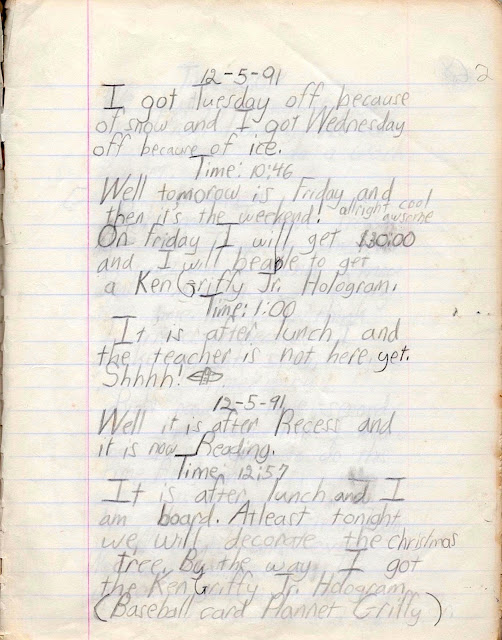 22
12-5-91
I got Tuesday off because
of snow and I got Wednesday
off because of ice.
Time: 10:46
Well tomorow is Friday and
then it's the weekend! allright cool
awsome
On friday I will get $30:00
and I will beable to get
a Ken Griffy Jr. Hologram.
Time: 1:00
It is after lunch and
the teacher is not here yet.
Shhhh!
12-5-91
Well it is after Recess and
it is now Reading.
Time: 12:57
It is after lunch and I
am board. Atleast tonight
we will decorate the christmas
tree. By the way I got
the Ken Griffy Jr. Hologram
(Baseball card Plannet Griffy)